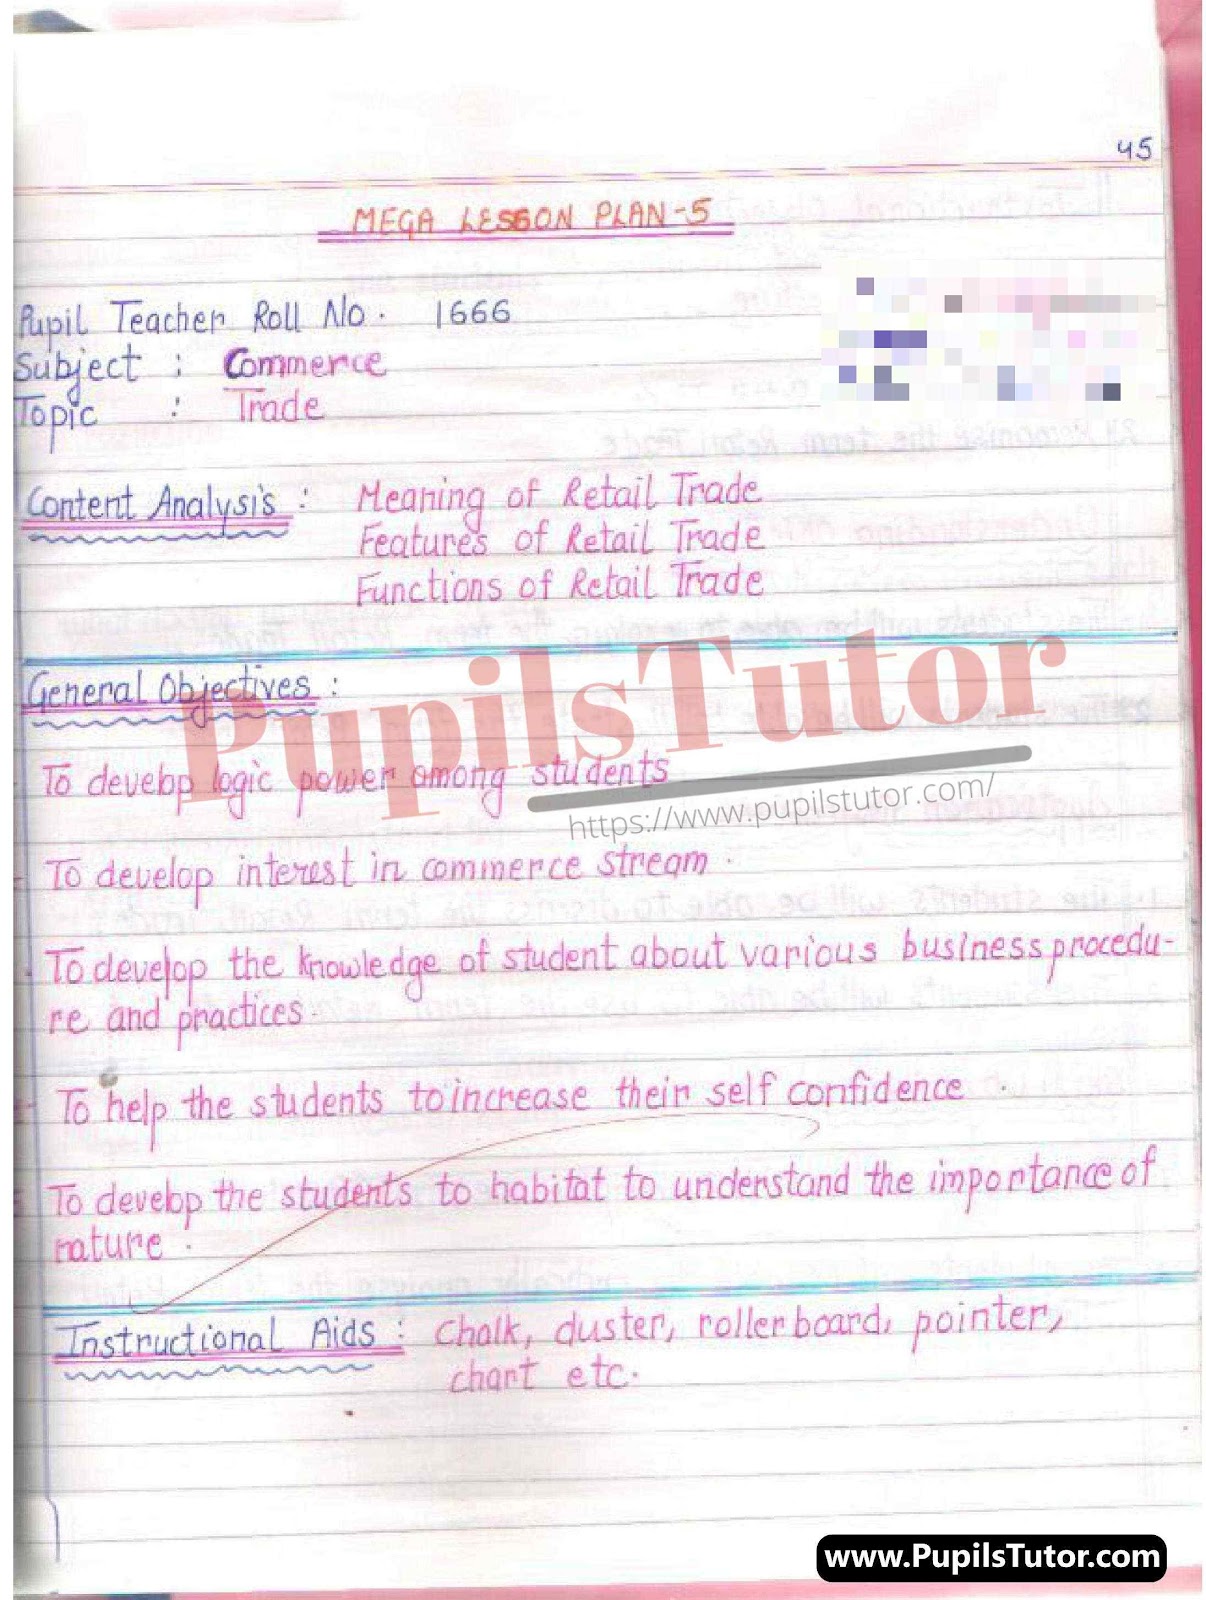 45
MEGA LESSON PLAN-5
Pupil Teacher Roll No. 1666
Subject : Commerce
Topic : Trade
Content Analysis : Meaning of Retail Trade
Features of Retail Trade
Functions of Retail Trade
General Objectives :
PupilsTutor
https://www.pupilstutor.com/
To develop logic power among students
- To develop interest in commerce stream .
- To develop the knowledge of student about various business procedu-
re and practices.
- To help the students to increase their self confidence .
- To develop the students to habitat to understand the importance of
nature .
Instructional Aids : Chalk, duster, roller board, pointer,
chart etc.
www.PupilsTutor.com